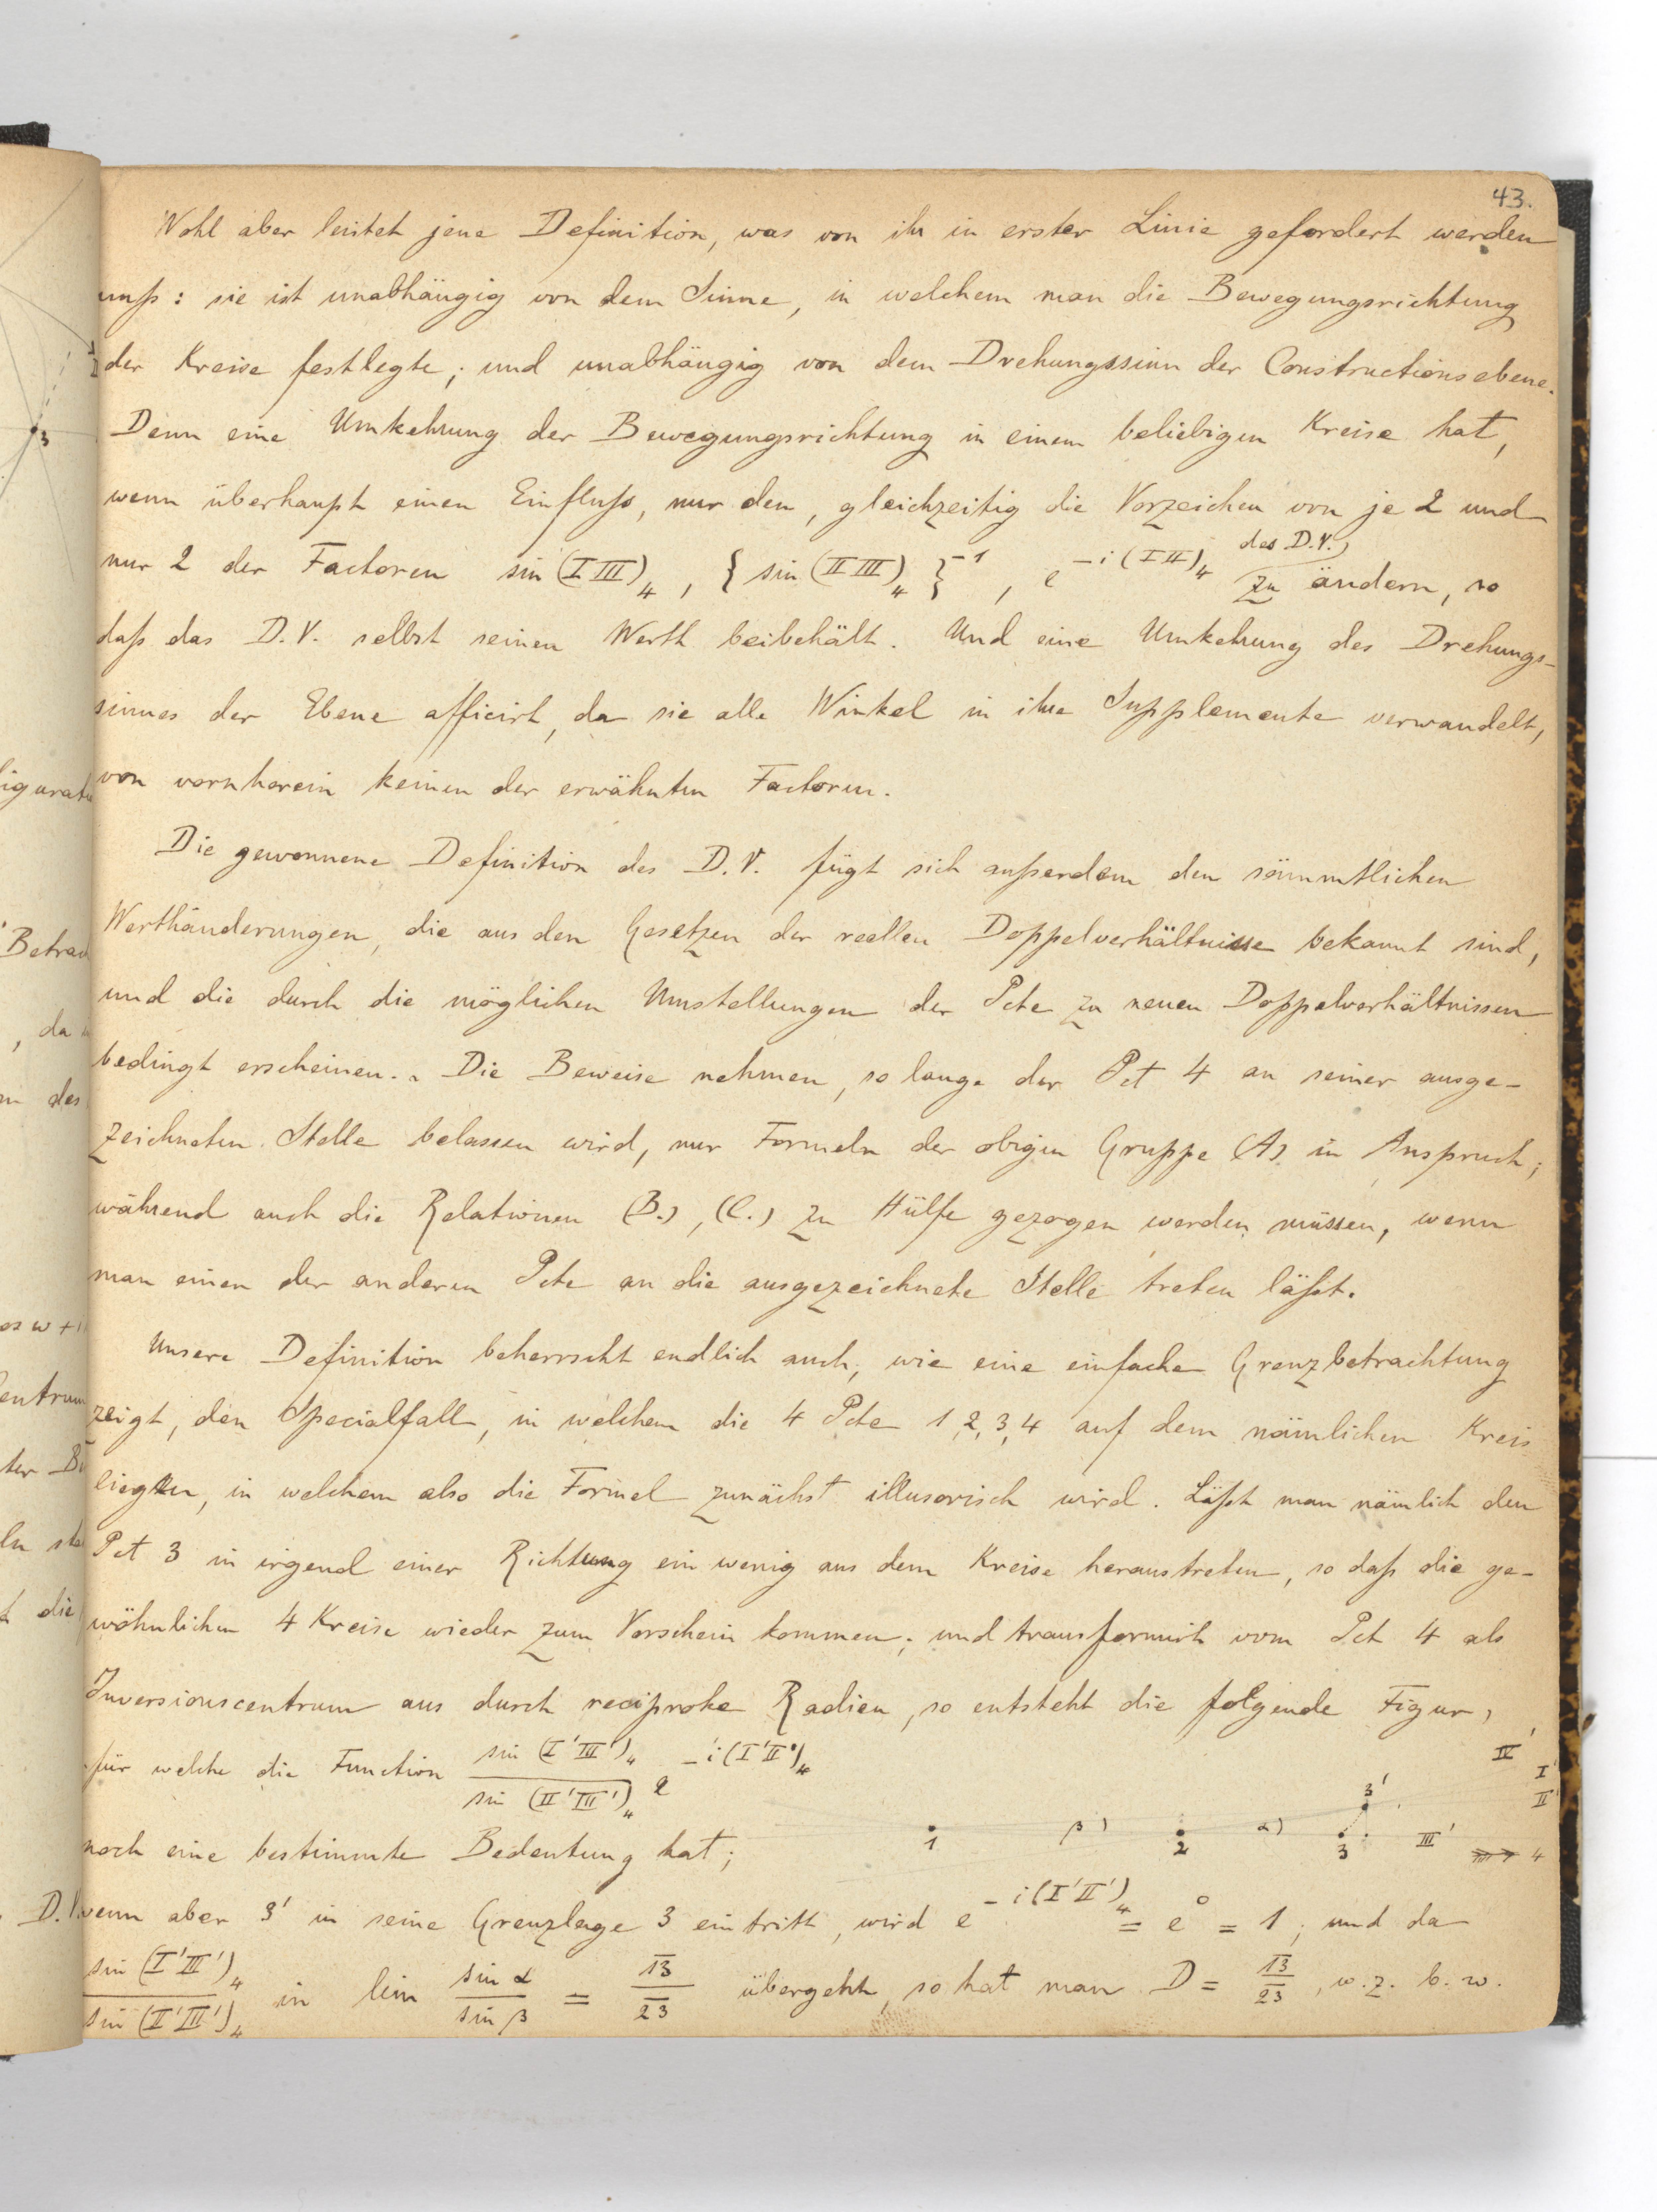 43.
Wohl aber leistet jene Definition, was von ihr in erster Linie gefordert werden
muß: sie ist unabhängig von dem Sinne, in welchem man die Bewegungsrichtung
der Kreise festlegte; und unabhängig von dem Drehungssinn der Constructionsebene.
Denn eine Umkehrung der Bewegungsrichtung in einem beliebigen Kreise hat,
wenn überhaupt einen Einfluß, nur den, gleichzeitig die Vorzeichen von je 2 und
nur 2 der Factoren sin (I III)₄, { sin (II III)₄ }⁻¹, e^{-i (I II)₄} des D.V. zu ändern, so
daß das D.V. selbst seinen Werth beibehält. Und eine Umkehrung des Drehungs-
sinnes der Ebene afficirt, da sie alle Winkel in ihre Supplemente verwandelt,
von vornherein keinen der erwähnten Factoren.
Die gewonnene Definition des D.V. fügt sich außerdem den sämmtlichen
Werthänderungen, die aus den Gesetzen der reellen Doppelverhältnisse bekannt sind,
und die durch die möglichen Umstellungen der Pcte zu neuen Doppelverhältnissen
bedingt erscheinen. Die Beweise nehmen, so lange der Pct 4 an seiner ausge-
zeichneten Stelle belassen wird, nur Formeln der obigen Gruppe (A) in Anspruch;
während auch die Relationen (B.), (C.) zu Hülfe gezogen werden müssen, wenn
man einen der anderen Pcte an die ausgezeichnete Stelle treten läßt.
Unsere Definition beherrscht endlich auch, wie eine einfache Grenzbetrachtung
zeigt, den Specialfall, in welchem die 4 Pcte 1, 2, 3, 4 auf dem nämlichen Kreis
liegen, in welchem also die Formel zunächst illusorisch wird. Läßt man nämlich den
Pct 3 in irgend einer Richtung ein wenig aus dem Kreise heraustreten, so daß die ge-
wöhnlichen 4 Kreise wieder zum Vorschein kommen; und transformirt vom Pct 4 als
Inversionscentrum aus durch reciproke Radien, so entsteht die folgende Figur,
für welche die Function sin (I'III')₄ / sin (II'III')₄ e^{-i (I'II')₄}
IV' I' II' 3'
1 β) 2 α) 3 III' 4
noch eine bestimmte Bedeutung hat;
wenn aber 3' in seine Grenzlage 3 eintritt, wird e^{-i (I'II')₄} = e⁰ = 1; und da
sin (I'III')₄ / sin (II'III')₄ in lim sin α / sin β = 13 / 23 übergeht, so hat man D = 13 / 23, w. z. b. w.